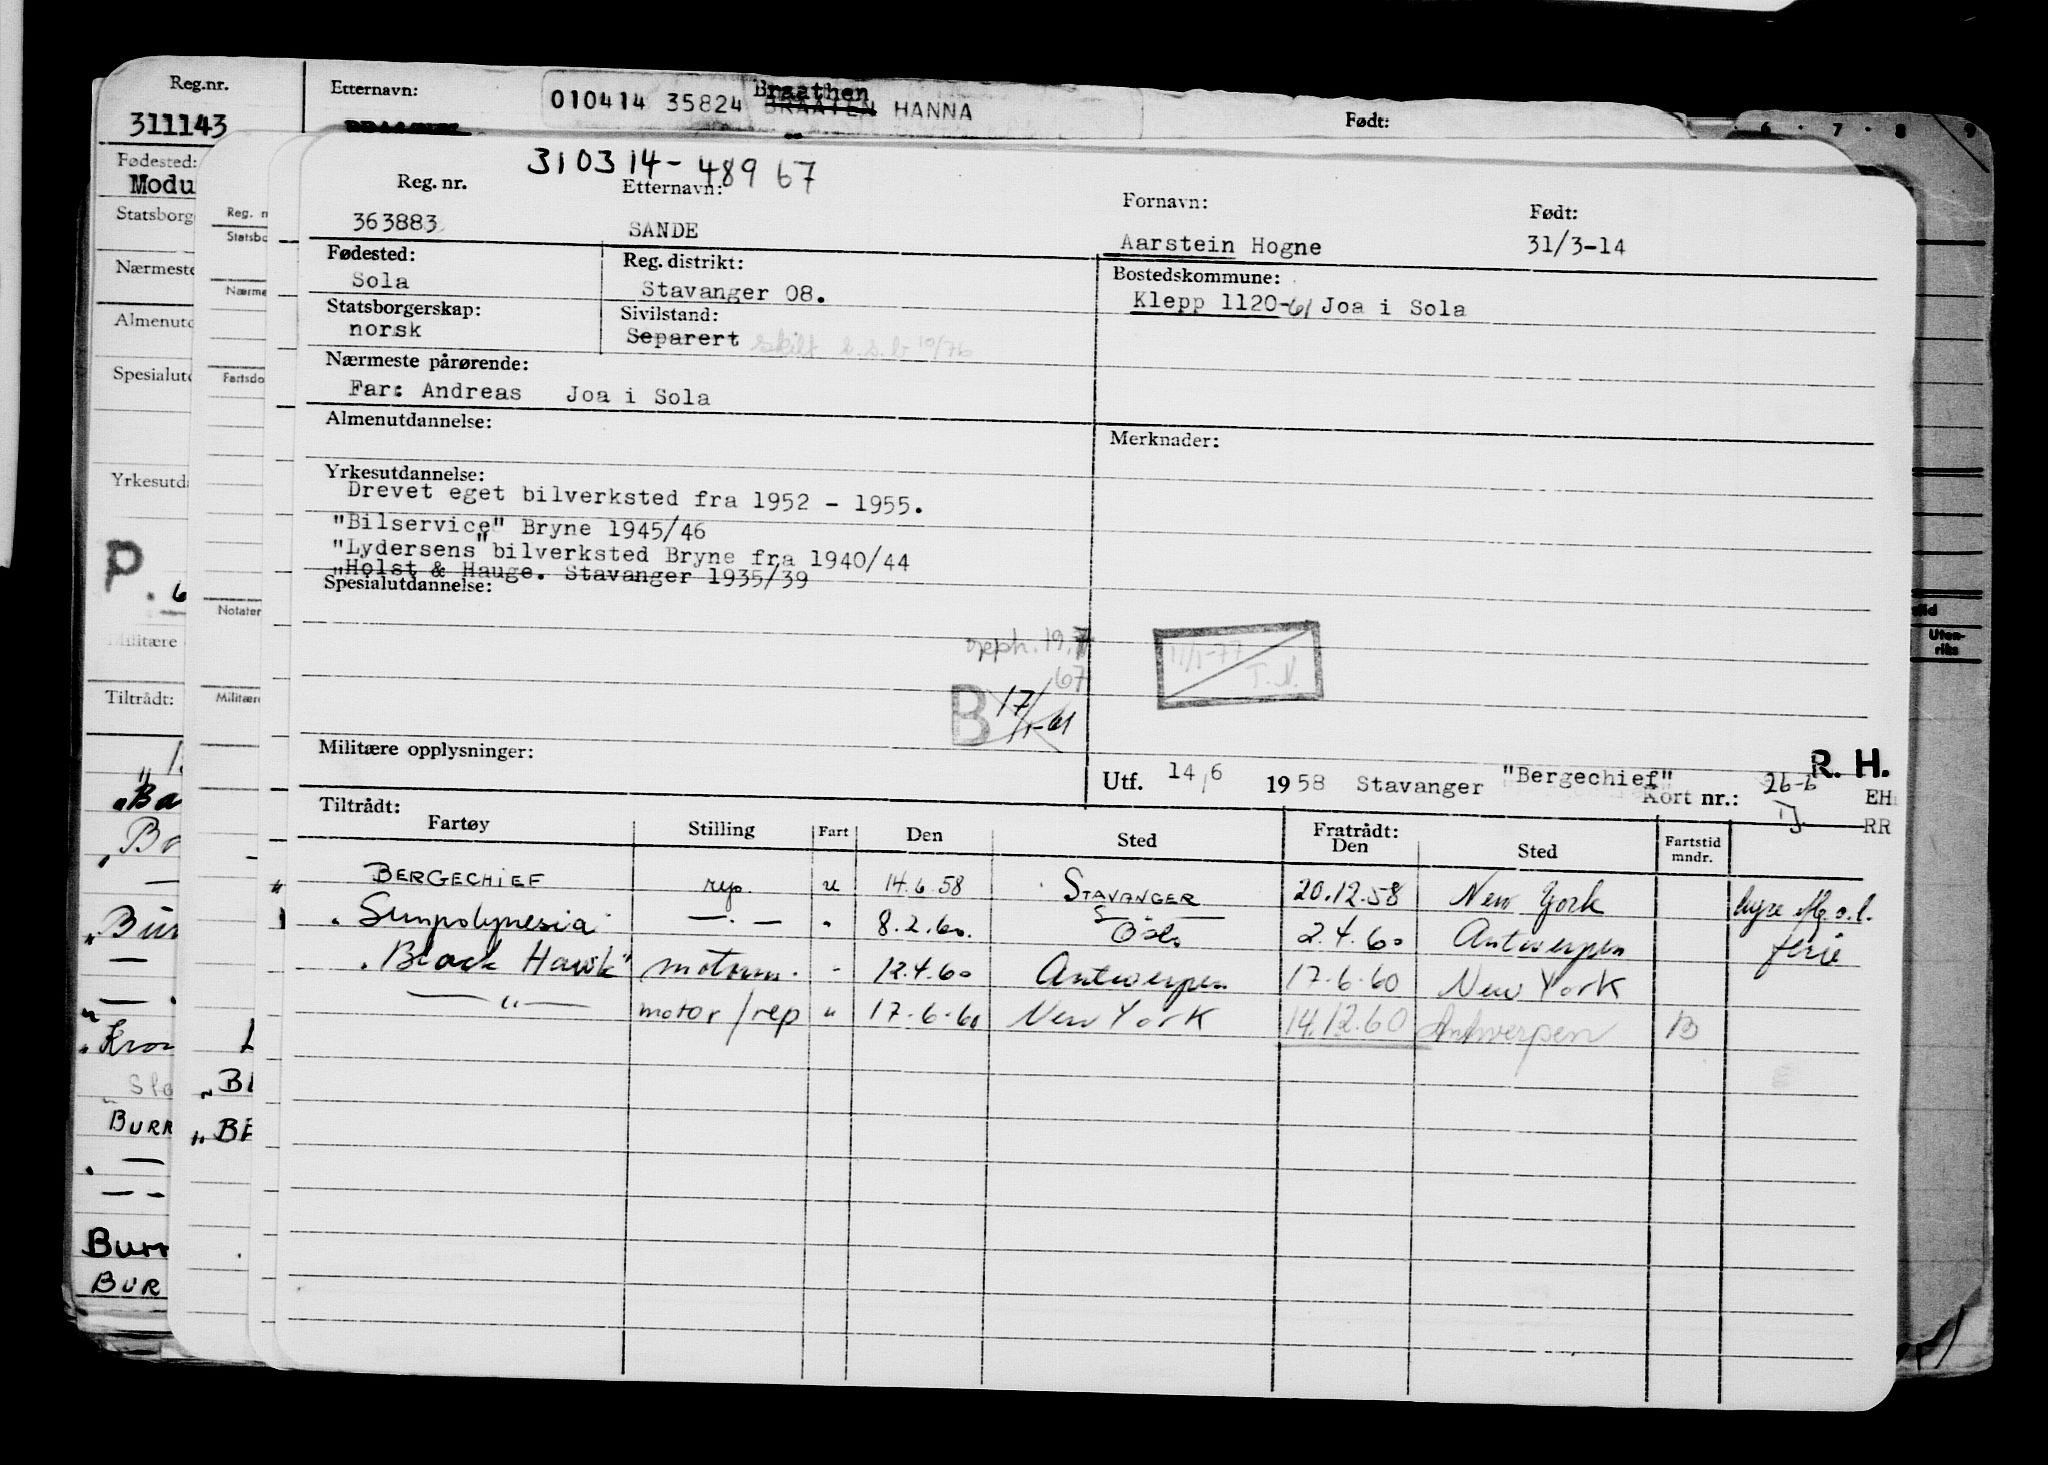 Reg.nr.
311143
Etternavn:
010414 35824 BRAATEN HANNA
Braathen
Født:
6 · 7 · 8 9
Fødested:
Modu
Statsborg
Nærmeste
Almenutd
Spesialutd
Yrkesutd
P.
Militære
Tiltrådt:
Reg. n
Statsbo
Nærme
Fartsdo
Notater
Militære
Uten-
riks
310314-48967
Reg. nr. Etternavn: Fornavn: Født:
363883 SANDE Aarstein Hogne 31/3-14
Fødested: Reg. distrikt: Bostedskommune:
Sola Stavanger 08. Klepp 1120-61 Joa i Sola
Statsborgerskap: Sivilstand:
norsk Separert skilt s.s.b 10/76
Nærmeste pårørende:
Far: Andreas Joa i Sola
Almenutdannelse: Merknader:
Yrkesutdannelse:
Drevet eget bilverksted fra 1952 - 1955.
"Bilservice" Bryne 1945/46
"Lydersens" bilverksted Bryne fra 1940/44
"Holst & Hauge. Stavanger 1935/39
Spesialutdannelse:
opph. 19.7
67
B 17/1-61
11/1-77
T.N.
Militære opplysninger:
R. H.
Utf. 14,6 1958 Stavanger "Bergechief" Kort nr.: 26-6 EH
RR
Tiltrådt: Fratrådt:
Fartøy Stilling Fart Den Sted Den Sted Fartstid mndr.
" BERGECHIEF rep. u 14.6.58 STAVANGER 20.12.58 New York hyre M.o.l.
" Sunpolynesia — . — " 8.2.60. Oslo 2.4.60 Antwerpen ferie
"Black Hawk" motorm. - 12.4.60 Antwerpen 17.6.60 New York
— " — motor/rep " 17.6.60 New York 14.12.60 Antwerpen B
"Ba
"Bur
"Kron
BURR
"BE
Burr
BUR